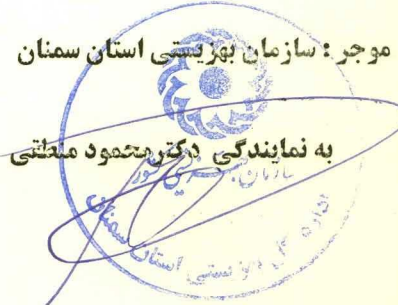 موجر : سازمان بهزیستی استان سمنان
به نمایندگی دکتر محمود منطقی
سازمان بهزیستی کشور
اداره کل بهزیستی استان سمنان